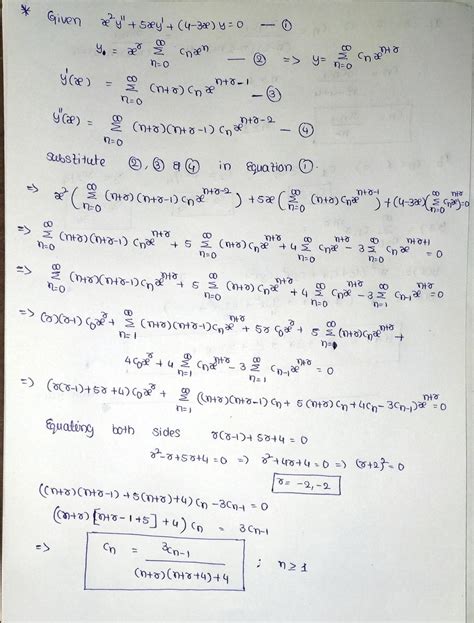 * Given x²y" + 5xy' + (4-3x)y = 0 — ①
y = x^r ∑_{n=0}^{∞} c_n x^n — ② => y = ∑_{n=0}^{∞} c_n x^{n+r}
y'(x) = ∑_{n=0}^{∞} (n+r) c_n x^{n+r-1} — ③
y"(x) = ∑_{n=0}^{∞} (n+r)(n+r-1) c_n x^{n+r-2} — ④
Substitute ②, ③ & ④ in Equation ①.
=> x² (∑_{n=0}^{∞} (n+r)(n+r-1) c_n x^{n+r-2}) + 5x (∑_{n=0}^{∞} (n+r) c_n x^{n+r-1}) + (4-3x)(∑_{n=0}^{∞} c_n x^{n+r}) = 0
=> ∑_{n=0}^{∞} (n+r)(n+r-1) c_n x^{n+r} + 5 ∑_{n=0}^{∞} (n+r) c_n x^{n+r} + 4 ∑_{n=0}^{∞} c_n x^{n+r} - 3 ∑_{n=0}^{∞} c_n x^{n+r+1} = 0
=> ∑_{n=0}^{∞} (n+r)(n+r-1) c_n x^{n+r} + 5 ∑_{n=0}^{∞} (n+r) c_n x^{n+r} + 4 ∑_{n=0}^{∞} c_n x^{n+r} - 3 ∑_{n=1}^{∞} c_{n-1} x^{n+r} = 0
=> (r)(r-1) c_0 x^r + ∑_{n=1}^{∞} (n+r)(n+r-1) c_n x^{n+r} + 5r c_0 x^r + 5 ∑_{n=1}^{∞} (n+r) c_n x^{n+r} +
4c_0 x^r + 4 ∑_{n=1}^{∞} c_n x^{n+r} - 3 ∑_{n=1}^{∞} c_{n-1} x^{n+r} = 0
=> (r(r-1)+5r+4) c_0 x^r + ∑_{n=1}^{∞} ((n+r)(n+r-1) c_n + 5(n+r) c_n + 4c_n - 3c_{n-1}) x^{n+r} = 0
Equating both sides r(r-1)+5r+4 = 0
r²-r+5r+4 = 0 => r²+4r+4 = 0 => (r+2)² = 0
r = -2, -2
((n+r)(n+r-1)+5(n+r)+4) c_n - 3c_{n-1} = 0
((n+r)[n+r-1+5]+4) c_n = 3c_{n-1}
=> c_n = 3c_{n-1} / ((n+r)(n+r+4)+4) ; n≥1